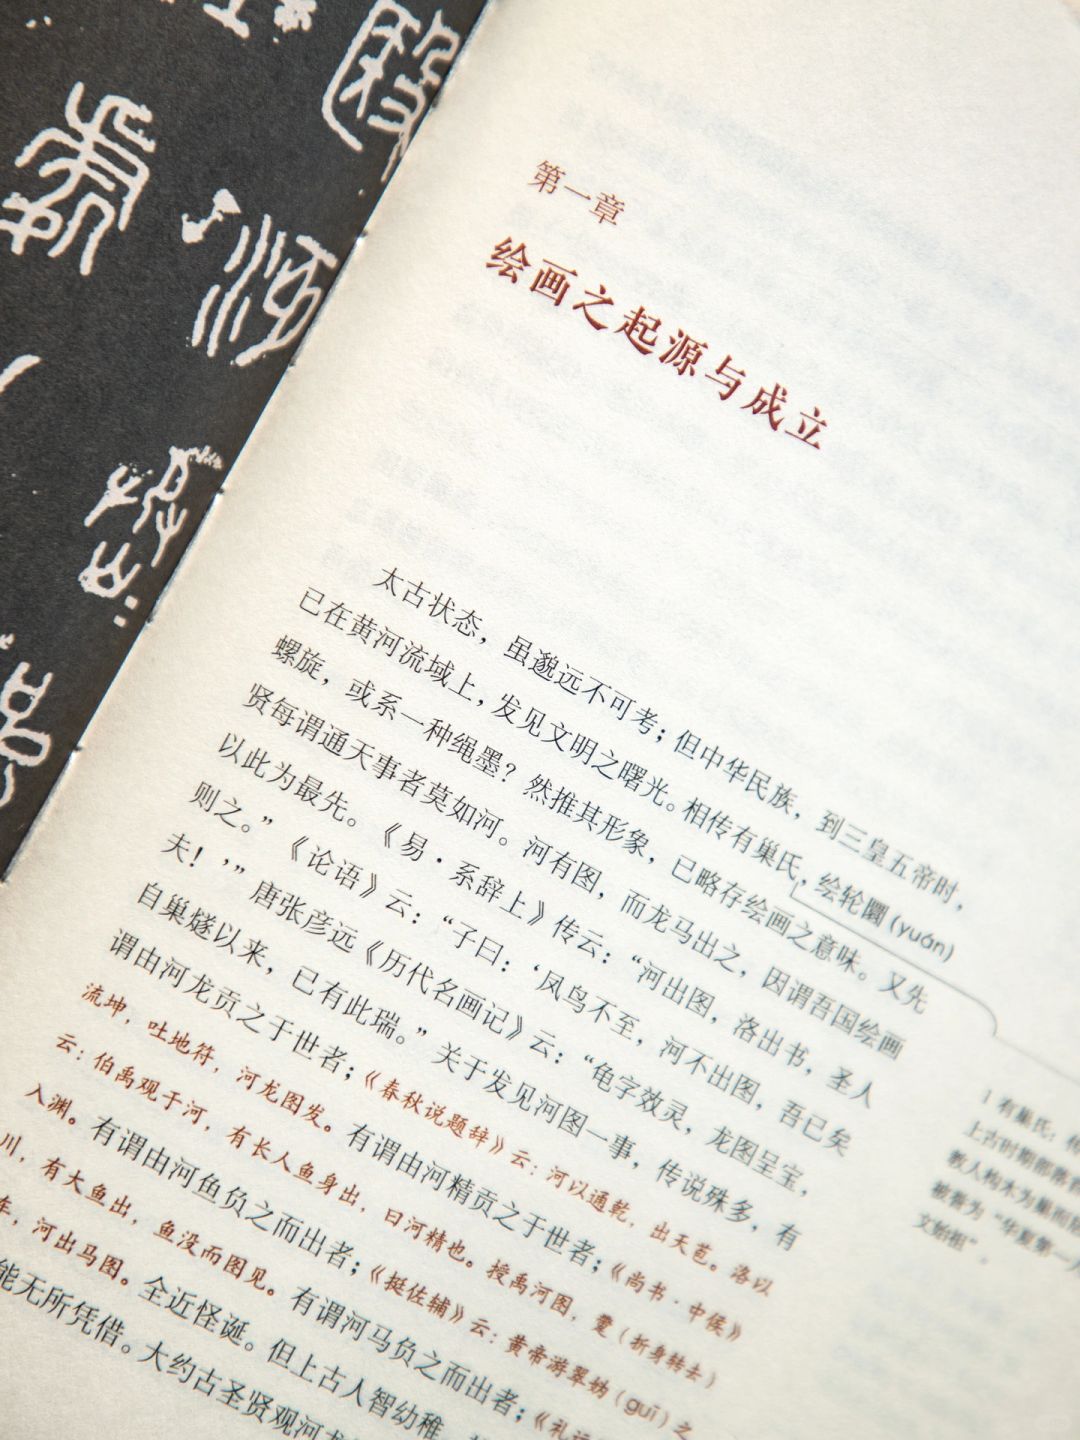 第一章
绘画之起源与成立
太古状态，虽邈远不可考；但中华民族，到三皇五帝时，
已在黄河流域上，发见文明之曙光。相传有巢氏，绘轮圜（yuán）
螺旋，或系一种绳墨？然推其形象，已略存绘画之意味。又先
贤每谓通天事者莫如河。河有图，而龙马出之，因谓吾国绘画
以此为最先。《易·系辞上》传云：“河出图，洛出书，圣人
则之。”《论语》云：“子曰：‘凤鸟不至，河不出图，吾已矣
夫！’”唐张彦远《历代名画记》云：“龟字效灵，龙图呈宝，
自巢燧以来，已有此瑞。”关于发见河图一事，传说殊多，有
谓由河龙贡之于世者；《春秋说题辞》云：河以通乾，出天苞。洛以
流坤，吐地符，河龙图发。有谓由河精贡之于世者；《尚书·中候》
云：伯禹观于河，有长人鱼身出，曰河精也。授禹河图，躉（折身转去）
入渊。有谓由河鱼负之而出者；《挺佐辅》云：黄帝游翠妫（guī）之
川，有大鱼出，鱼没而图见。有谓河马负之而出者；《礼运
车，河出马图。全近怪诞。但上古人智幼稚，
能无所凭借。大约古圣贤观河
1 有巢氏：传
上古时期部落首
教人构木为巢而
被誉为“华夏第一人
文始祖”。